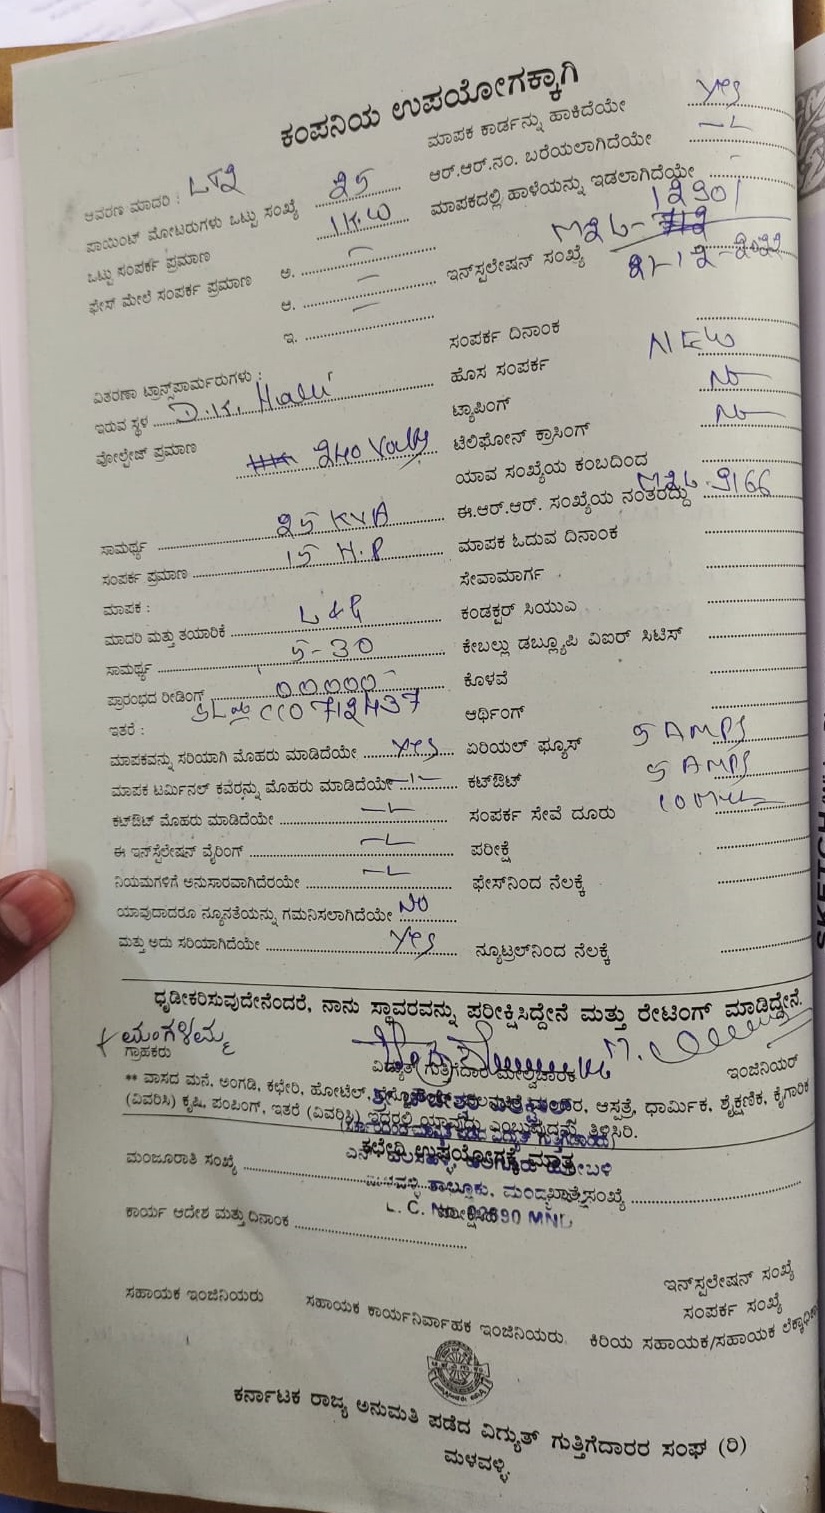 ಕಂಪನಿಯ ಉಪಯೋಗಕ್ಕಾಗಿ
ಆವರಣ ಮಾದರಿ : LT2
ಮಾಪಕ ಕಾರ್ಡನ್ನು ಹಾಕಿದೆಯೇ Yes
ಪಾಯಿಂಟ್ ಮೋಟರುಗಳು ಒಟ್ಟು ಸಂಖ್ಯೆ 25
ಆರ್.ಆರ್.ನಂ. ಬರೆಯಲಾಗಿದೆಯೇ
ಒಟ್ಟು ಸಂಪರ್ಕ ಪ್ರಮಾಣ 1K.W
ಮಾಪಕದಲ್ಲಿ ಹಾಳೆಯನ್ನು ಇಡಲಾಗಿದೆಯೇ
ಫೇಸ್ ಮೇಲೆ ಸಂಪರ್ಕ ಪ್ರಮಾಣ ಅ.
ಇನ್‌ಸ್ಪಲೇಷನ್ ಸಂಖ್ಯೆ M2L- 12901
ಆ.
21-12-2022
ಇ.
ಸಂಪರ್ಕ ದಿನಾಂಕ
ವಿತರಣಾ ಟ್ರಾನ್ಸ್‌ಪಾರ್ಮರುಗಳು :
ಹೊಸ ಸಂಪರ್ಕ NEW
ಇರುವ ಸ್ಥಳ D.K. Halli
ಟ್ಯಾಪಿಂಗ್ No
ವೋಲ್ಟೇಜ್ ಪ್ರಮಾಣ 240 Volts
ಟೆಲಿಫೋನ್ ಕ್ರಾಸಿಂಗ್ No
ಯಾವ ಸಂಖ್ಯೆಯ ಕಂಬದಿಂದ
ಸಾಮರ್ಥ್ಯ 25 KVA
ಈ.ಆರ್.ಆರ್. ಸಂಖ್ಯೆಯ ನಂತರದ್ದು M2L.9166
ಸಂಪರ್ಕ ಪ್ರಮಾಣ 15 H.P
ಮಾಪಕ ಓದುವ ದಿನಾಂಕ
ಮಾಪಕ :
ಸೇವಾಮಾರ್ಗ
ಮಾದರಿ ಮತ್ತು ತಯಾರಿಕೆ L&G
ಕಂಡಕ್ಟರ್ ಸಿಯುಎ
ಸಾಮರ್ಥ್ಯ 5-30
ಕೇಬಲ್ಲು ಡಬ್ಲ್ಯೂಪಿ ವಿಐರ್ ಸಿಟಿಸ್
ಪ್ರಾರಂಭದ ರೀಡಿಂಗ್ 00000
ಕೊಳವೆ
ಇತರೆ : SL no CC0712437
ಆರ್ಥಿಂಗ್
ಮಾಪಕವನ್ನು ಸರಿಯಾಗಿ ಮೊಹರು ಮಾಡಿದೆಯೇ Yes
ಏರಿಯಲ್ ಫ್ಯೂಸ್ 5 AMPS
ಮಾಪಕ ಟರ್ಮಿನಲ್ ಕವರನ್ನು ಮೊಹರು ಮಾಡಿದೆಯೇ
ಕಟ್‌ಔಟ್ 5 AMPS
ಕಟ್‌ಔಟ್ ಮೊಹರು ಮಾಡಿದೆಯೇ
ಸಂಪರ್ಕ ಸೇವೆ ದೂರು 10
ಈ ಇನ್‌ಸ್ಟಲೇಷನ್ ವೈರಿಂಗ್
ಪರೀಕ್ಷೆ
ನಿಯಮಗಳಿಗೆ ಅನುಸಾರವಾಗಿದೆರಯೇ
ಫೇಸ್‌ನಿಂದ ನೆಲಕ್ಕೆ
ಯಾವುದಾದರೂ ನ್ಯೂನತೆಯನ್ನು ಗಮನಿಸಲಾಗಿದೆಯೇ No
ಮತ್ತು ಅದು ಸರಿಯಾಗಿದೆಯೇ Yes
ನ್ಯೂಟ್ರಲ್‌ನಿಂದ ನೆಲಕ್ಕೆ
ಧೃಡೀಕರಿಸುವುದೇನೆಂದರೆ, ನಾನು ಸ್ಥಾವರವನ್ನು ಪರೀಕ್ಷಿಸಿದ್ದೇನೆ ಮತ್ತು ರೇಟಿಂಗ್ ಮಾಡಿದ್ದೇನೆ.
ಮಂಗಳಮ್ಮ
ಗ್ರಾಹಕರು ವಿದ್ಯುತ್ ಗುತ್ತಿಗೆದಾರ ಮೇಲ್ವಿಚಾರಕ ಇಂಜಿನಿಯರ್
** ವಾಸದ ಮನೆ, ಅಂಗಡಿ, ಕಛೇರಿ, ಹೋಟೆಲ್, ಆಸ್ಪತ್ರೆ, ಧಾರ್ಮಿಕ, ಶೈಕ್ಷಣಿಕ, ಕೈಗಾರಿಕೆ
(ವಿವರಿಸಿ) ಕೃಷಿ, ಪಂಪಿಂಗ್, ಇತರೆ (ವಿವರಿಸಿ) ಇದರಲ್ಲಿ ಯಾವುದು ಎಂಬುವುದನ್ನು ತಿಳಿಸಿರಿ.
ಕಛೇರಿ ಉಪಯೋಗಕ್ಕೆ ಮಾತ್ರ
ಮಂಜೂರಾತಿ ಸಂಖ್ಯೆ
ಮಳವಳ್ಳಿ ತಾಲ್ಲೂಕು, ಮಂಡ್ಯ
ಕಾರ್ಯ ಆದೇಶ ಮತ್ತು ದಿನಾಂಕ
L. C. No. 02690 MND
ಇನ್‌ಸ್ಪಲೇಷನ್ ಸಂಖ್ಯೆ
ಸಂಪರ್ಕ ಸಂಖ್ಯೆ
ಸಹಾಯಕ ಇಂಜಿನಿಯರು ಸಹಾಯಕ ಕಾರ್ಯನಿರ್ವಾಹಕ ಇಂಜಿನಿಯರು. ಕಿರಿಯ ಸಹಾಯಕ/ಸಹಾಯಕ
ಕರ್ನಾಟಕ ರಾಜ್ಯ ಅನುಮತಿ ಪಡೆದ ವಿದ್ಯುತ್ ಗುತ್ತಿಗೆದಾರರ ಸಂಘ (ರಿ)
ಮಳವಳ್ಳಿ.